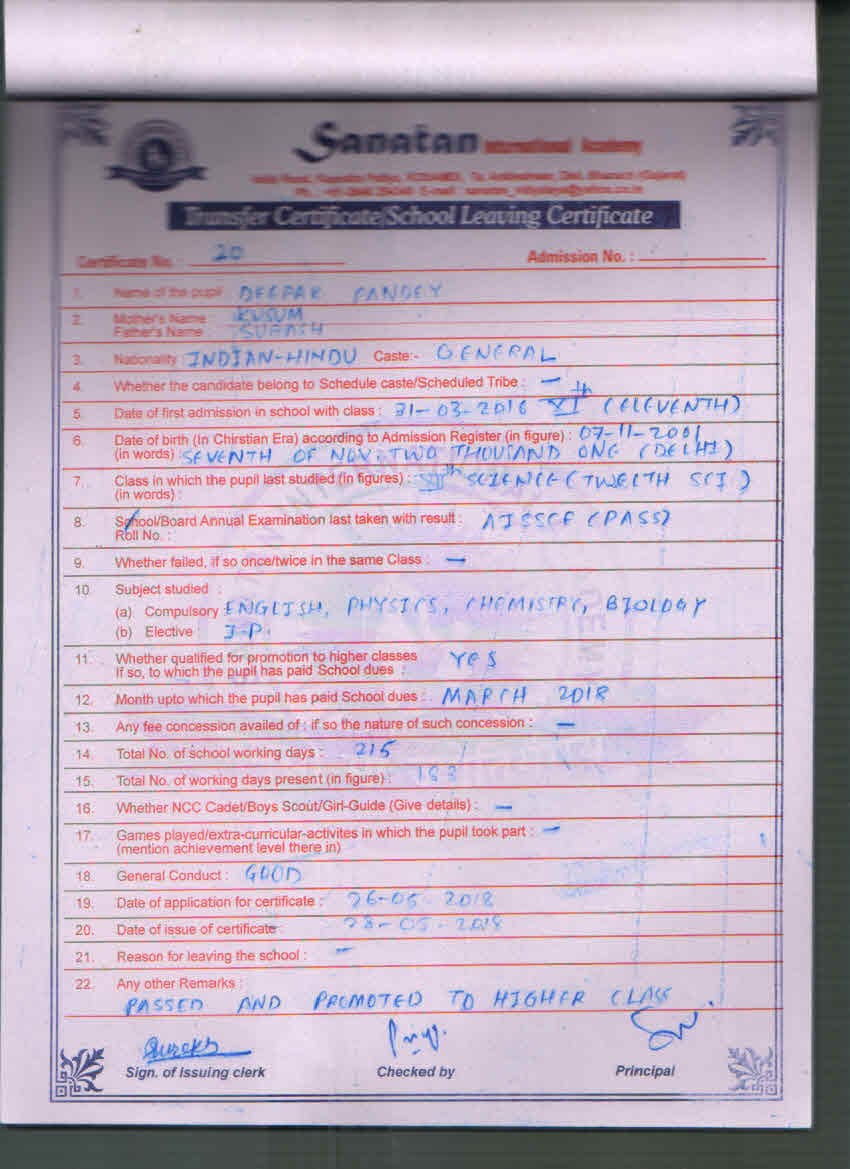 Sanatan International Academy
Transfer Certificate/School Leaving Certificate
Certificate No. : 20 Admission No. :
1. Name of the pupil DEEPAK PANDEY
2. Mother's Name KUSUM
Father's Name : SUBASH
3. Nationality : INDIAN-HINDU Caste:- GENERAL
4. Whether the candidate belong to Schedule caste/Scheduled Tribe : —
5. Date of first admission in school with class : 31-03-2016 XIth (ELEVENTH)
6. Date of birth (In Chirstian Era) according to Admission Register (in figure) : 07-11-2001
(in words) : SEVENTH OF NOV. TWO THOUSAND ONE (DELHI)
7. Class in which the pupil last studied (in figures) : XIIth SCIENCE (TWELTH SCI)
(in words) :
8. School/Board Annual Examination last taken with result : AISSCE (PASS)
Roll No. :
9. Whether failed, if so once/twice in the same Class : —
10. Subject studied :
(a) Compulsory ENGLISH, PHYSICS, CHEMISTRY, BIOLOGY
(b) Elective : I.P.
11. Whether qualified for promotion to higher classes YES
If so, to which the pupil has paid School dues :
12. Month upto which the pupil has paid School dues : MARCH 2018
13. Any fee concession availed of : if so the nature of such concession : —
14. Total No. of school working days : 215
15. Total No. of working days present (in figure) : 183
16. Whether NCC Cadet/Boys Scout/Girl-Guide (Give details) : —
17. Games played/extra-curricular-activites in which the pupil took part : —
(mention achievement level there in)
18. General Conduct : GOOD
19. Date of application for certificate : 26-05-2018
20. Date of issue of certificate : 28-05-2018
21. Reason for leaving the school : —
22. Any other Remarks :
PASSED AND PROMOTED TO HIGHER CLASS
Sign. of Issuing clerk Checked by Principal